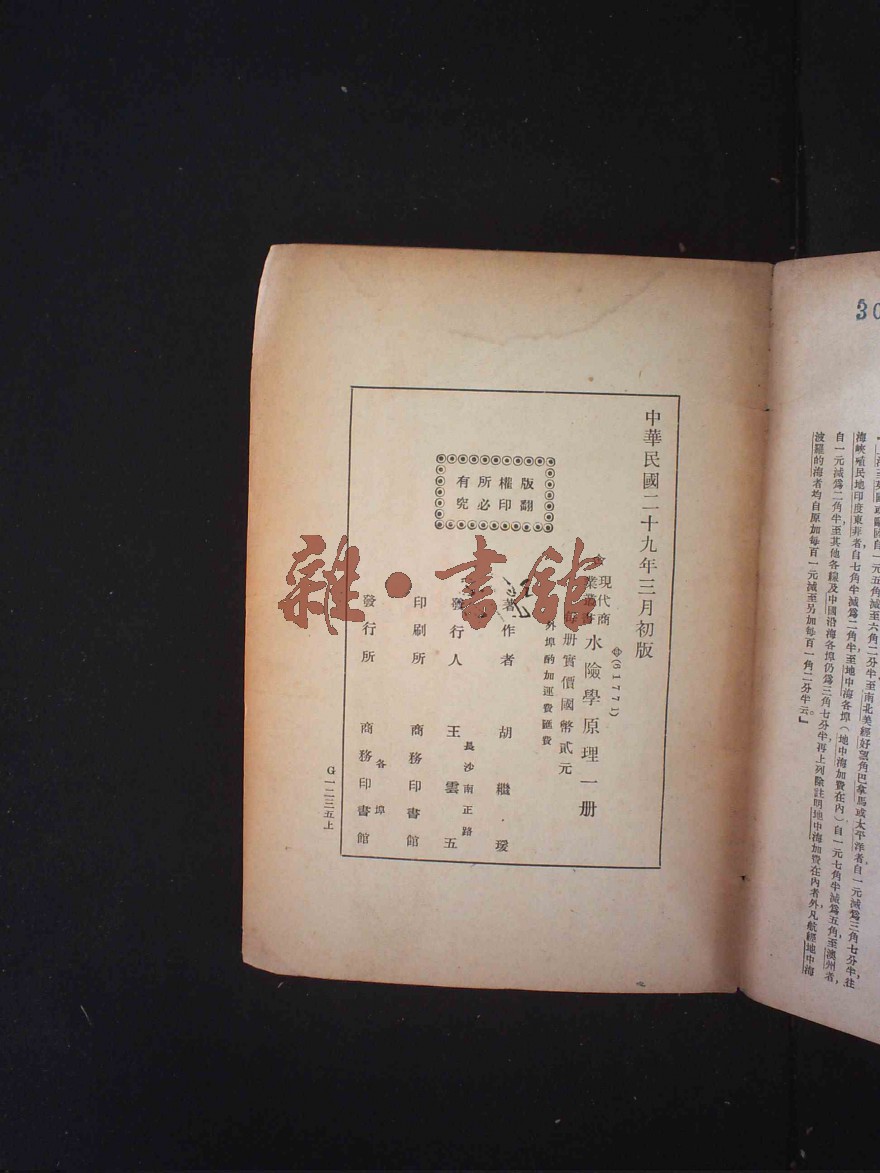 30
海峽殖民地印度東菲者，自七角半減爲二角半，至地中海各埠（地中海加費在內）自一元七角半減爲五角，至澳州者，
自一元減爲二角半至其他各綫及中國沿海各埠仍爲三角七分半，再上列除註明地中海加費在內者外，凡航經地中海
波羅的海者均自原加每百一元減至另加每百一角二分半云。』
中華民國二十九年三月初版
(61771)
現代商
業叢書 水險學原理一册
每册實價國幣貳元
外埠酌加運費匯費
著作者 胡繼瑗
發行人 王雲五
長沙南正路
印刷所 商務印書館
發行所 商務印書館
各埠
版權所有
翻印必究
G一二三五上
雜·書館